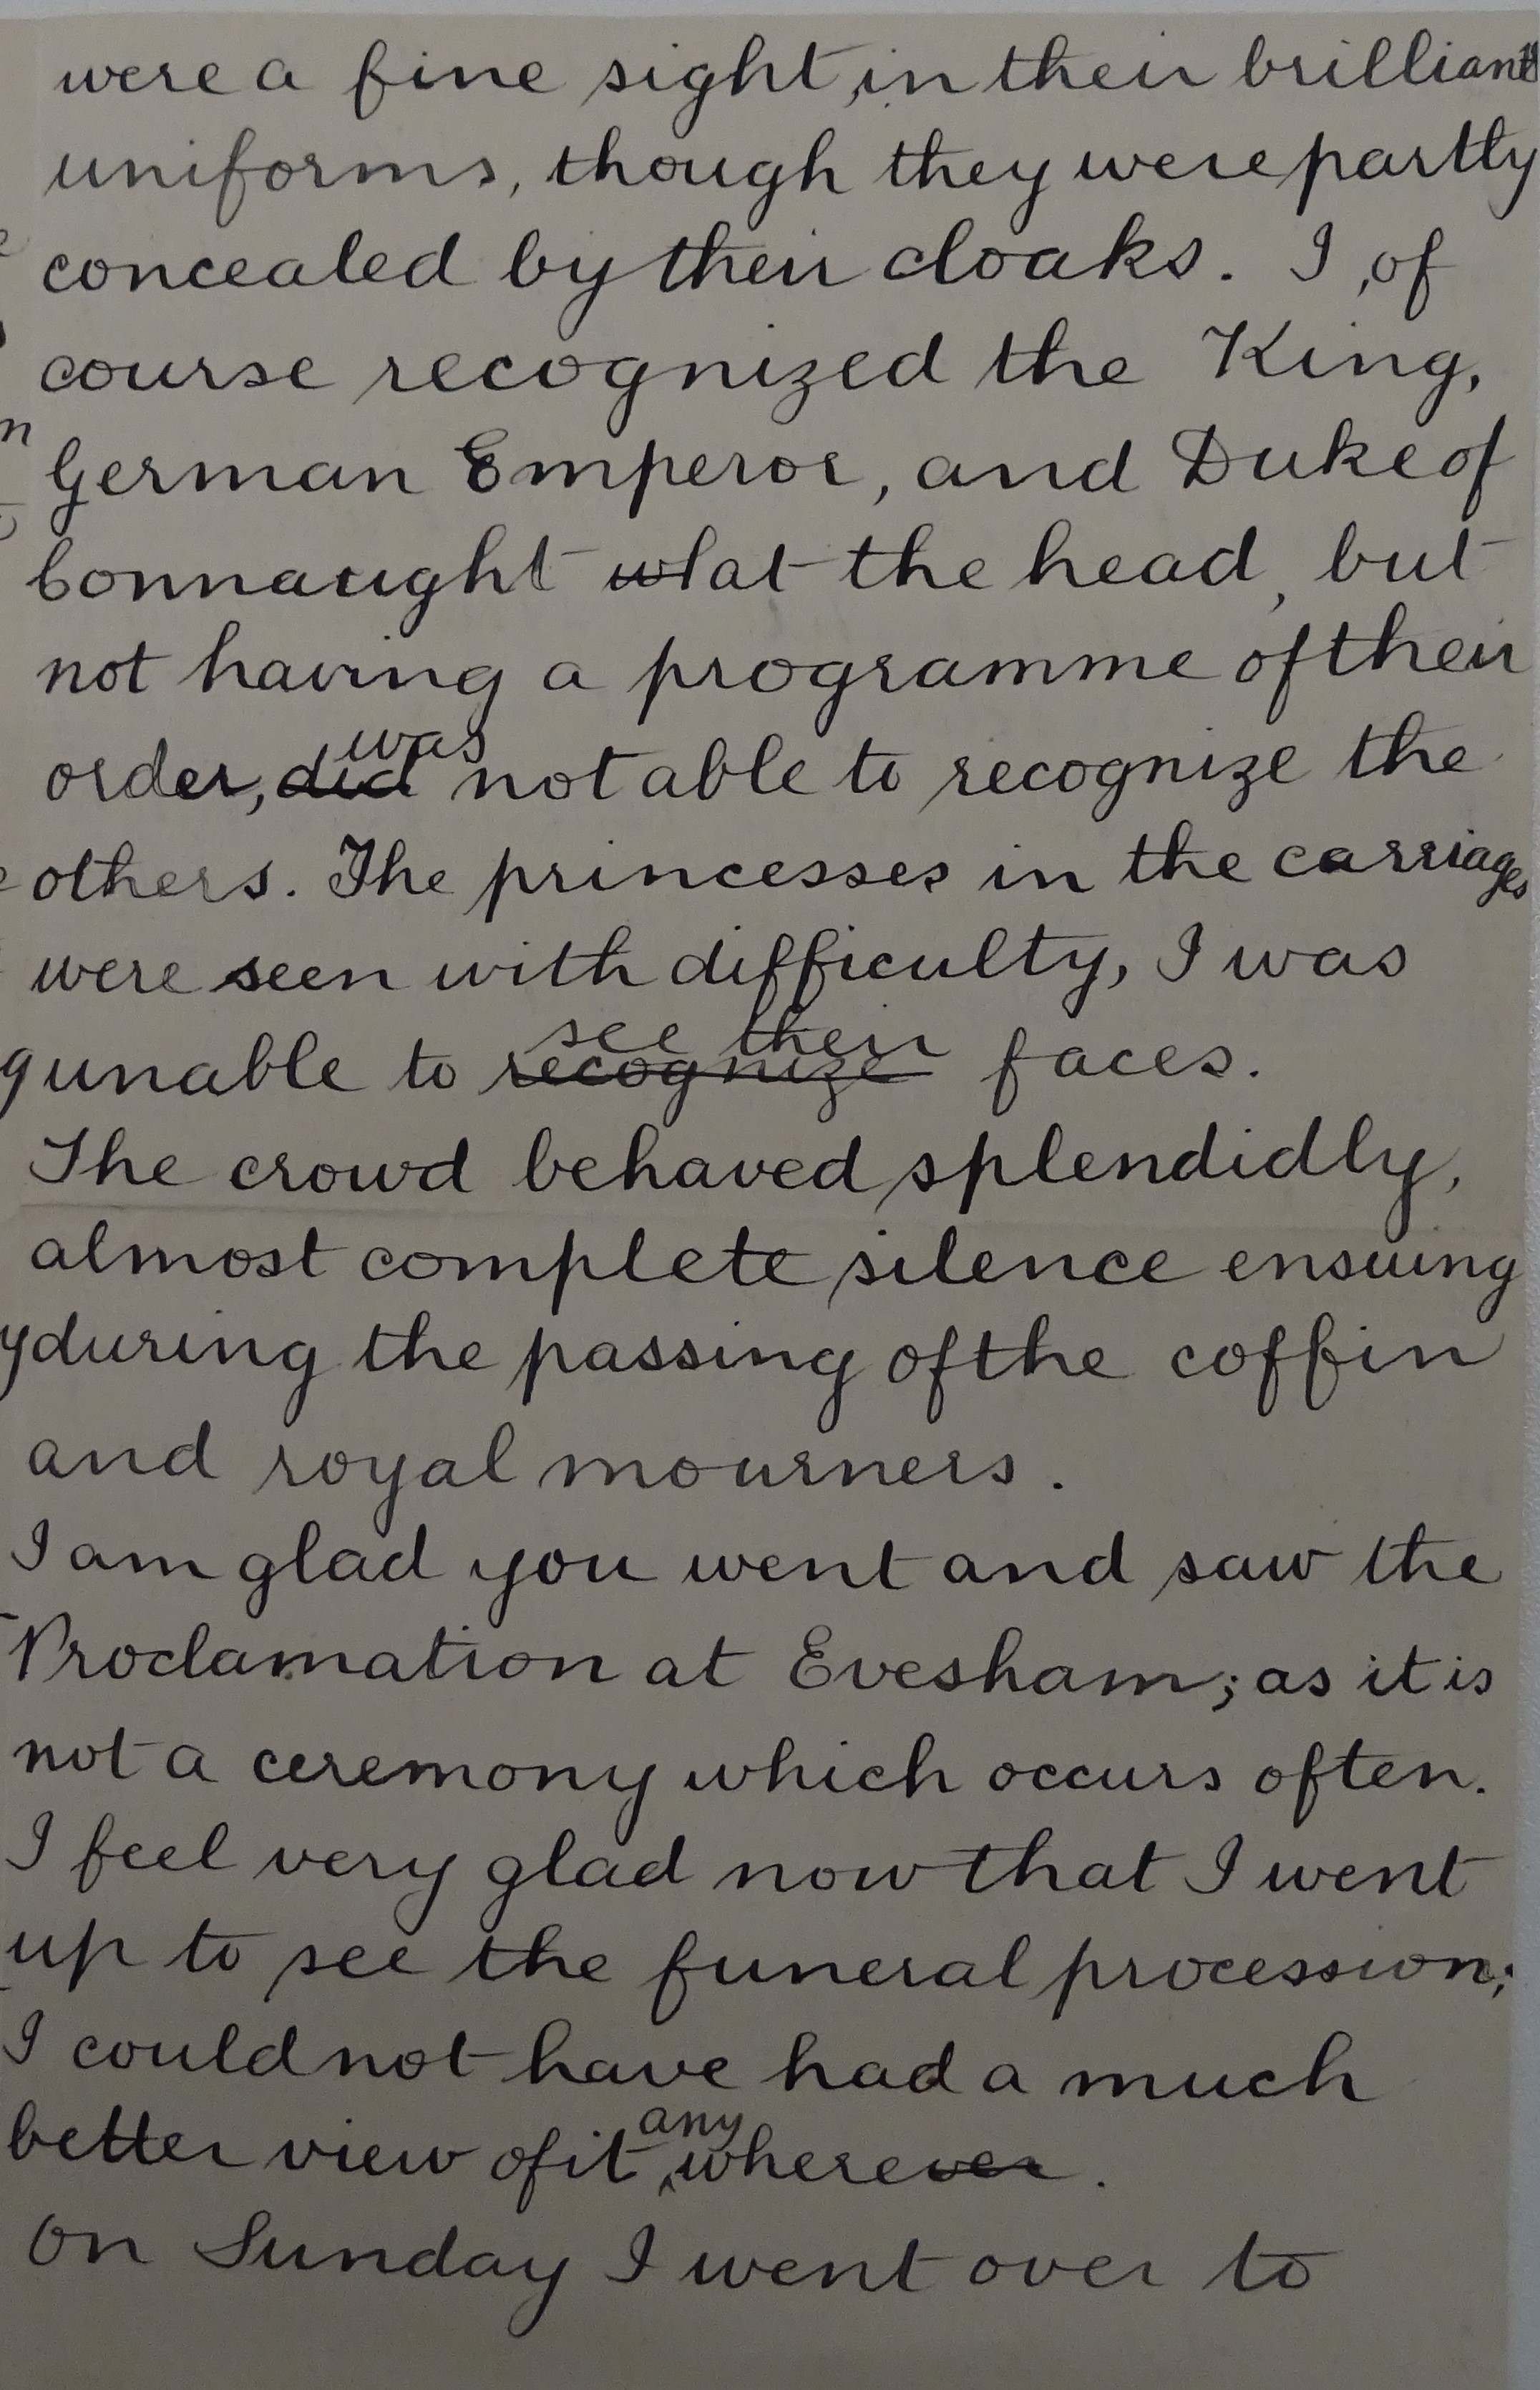 were a fine sight, in their brilliant
uniforms, though they were partly
concealed by their cloaks. I, of
course recognized the King,
German Emperor, and Duke of
Connaught at the head, but
not having a programme of their
order, did was not able to recognize the
others. The princesses in the carriages
were seen with difficulty, I was
unable to recognize see their faces.
The crowd behaved splendidly,
almost complete silence ensuing
during the passing of the coffin
and royal mourners.
I am glad you went and saw the
Proclamation at Evesham; as it is
not a ceremony which occurs often.
I feel very glad now that I went
up to see the funeral procession;
I could not have had a much
better view of it anywhereever.
On Sunday I went over to